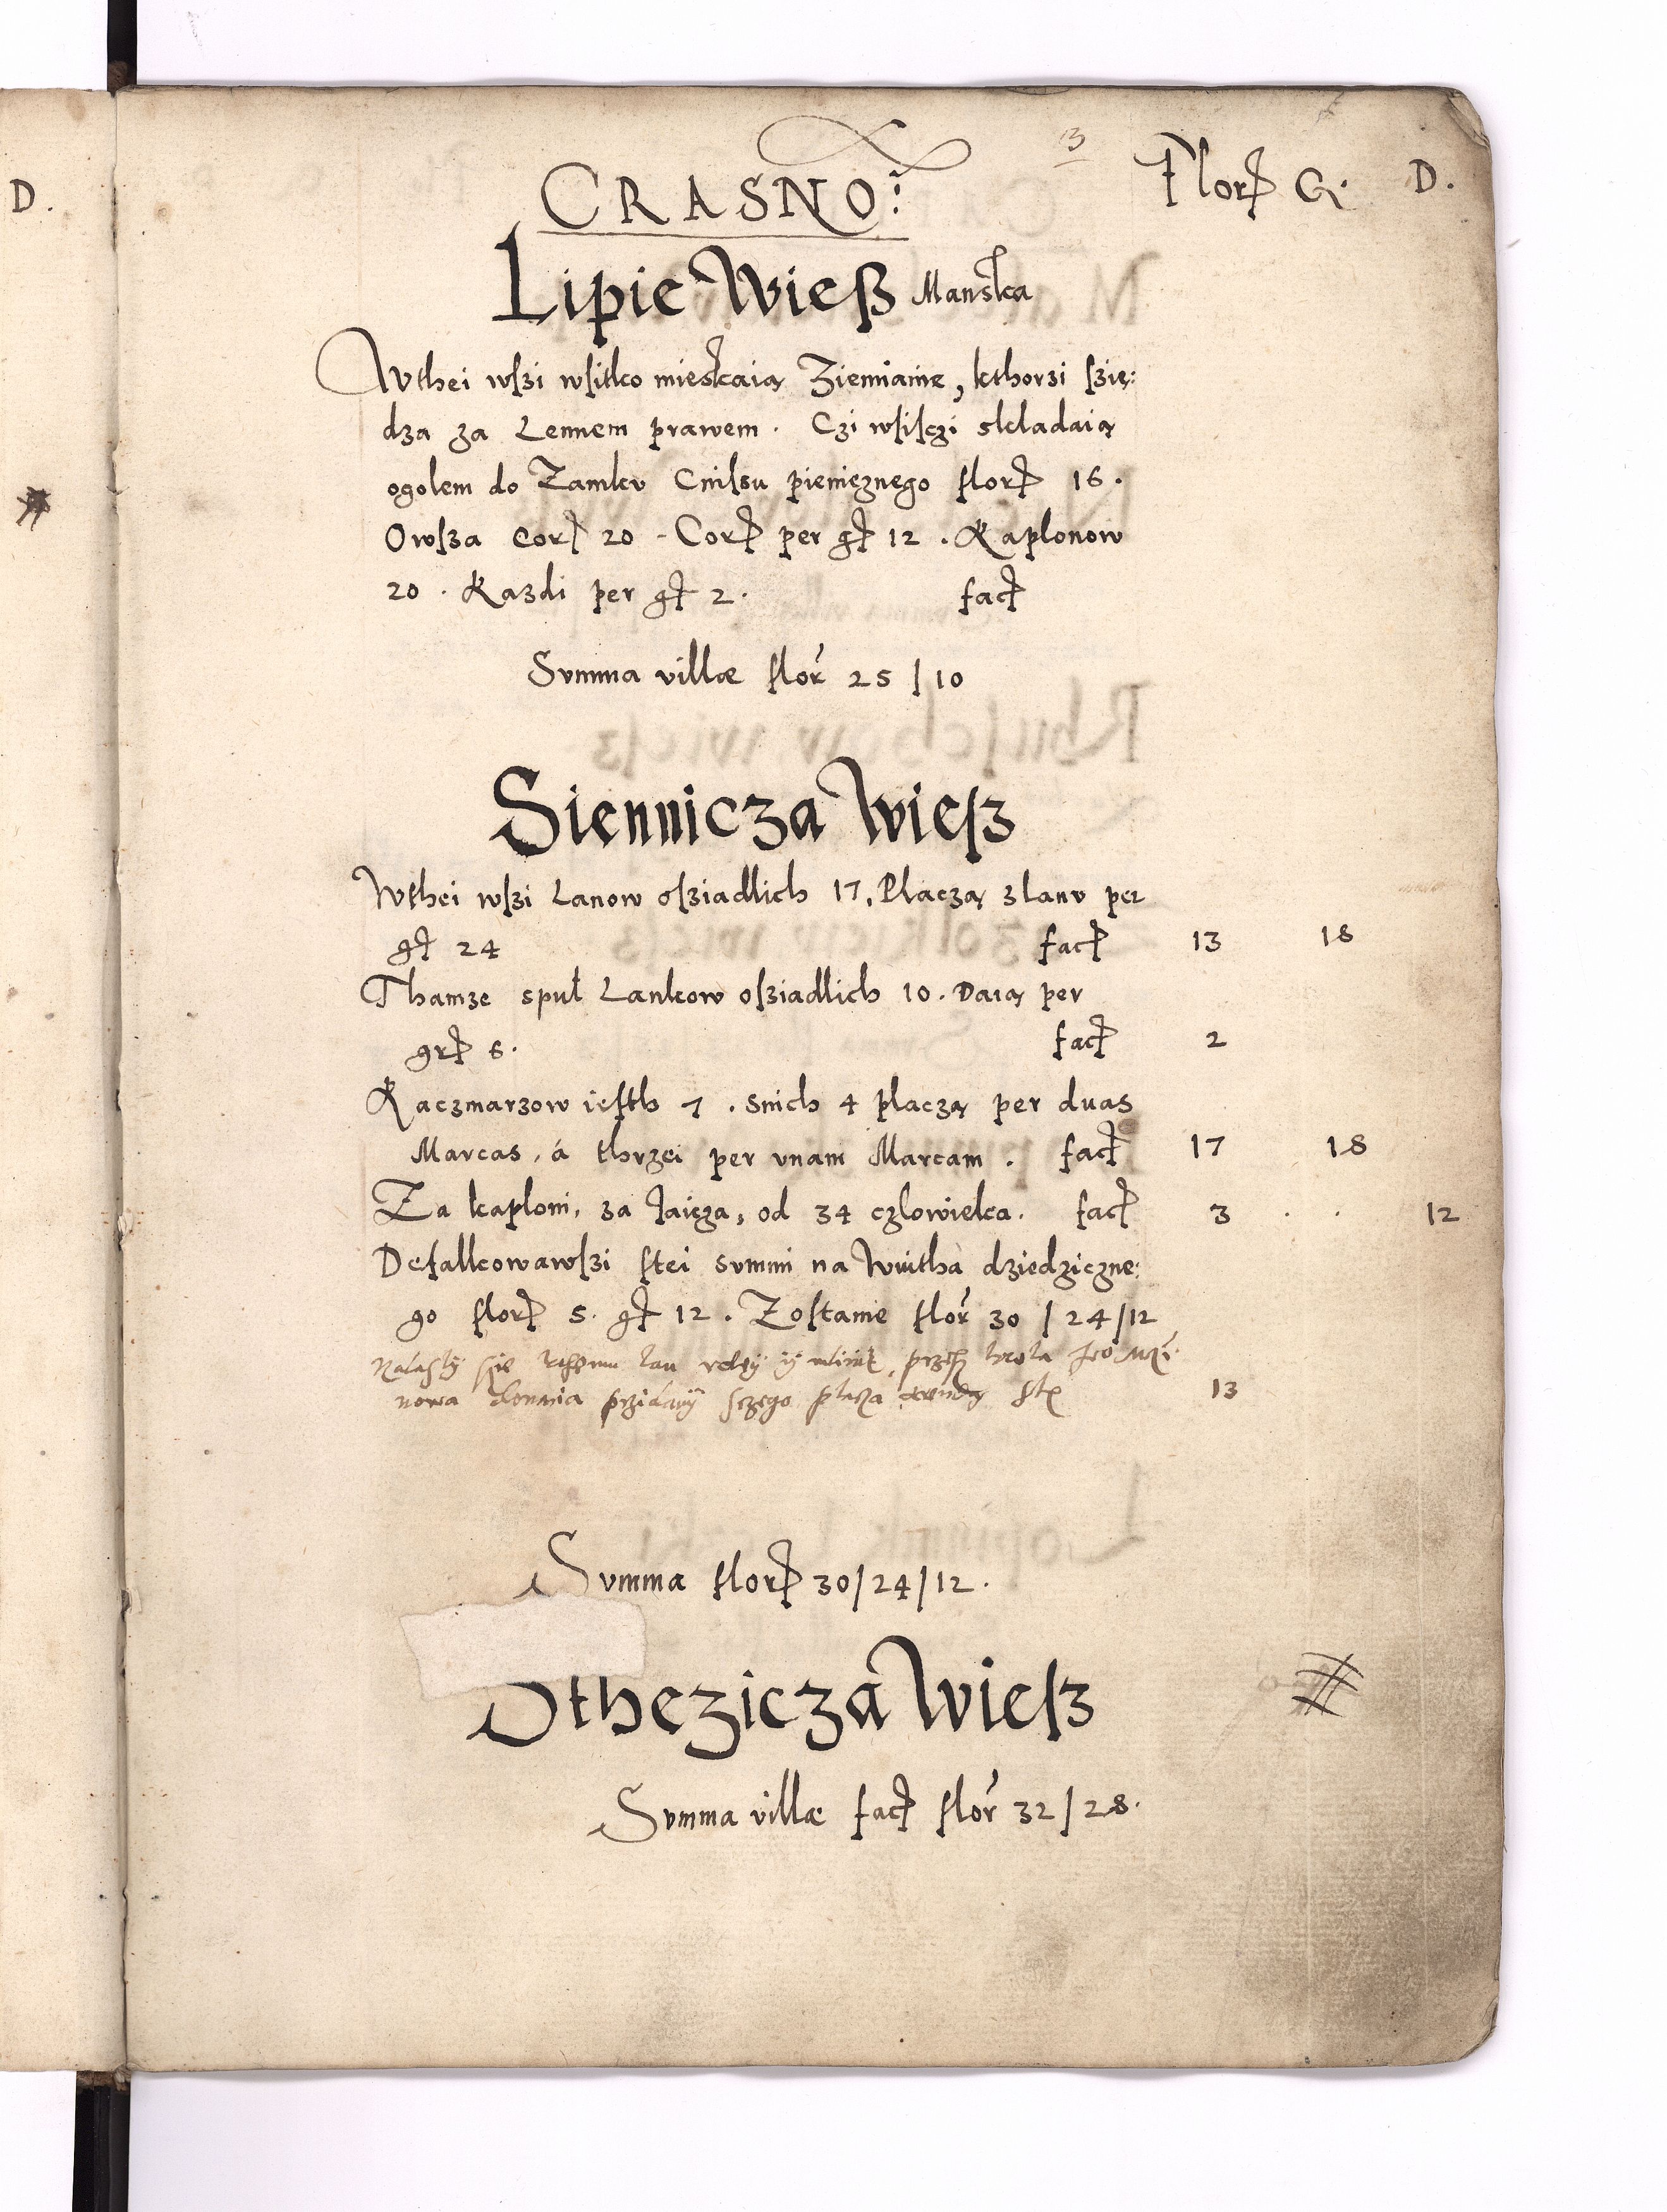 D.
3
CRASNO:
Flor G. D.
Lipie Wieß Manska
Wthei wszi wsitko mieskaią Ziemianie, kthorzi szię:
dza za Lennem prawem. Czi wsisczi skladaią
ogolem do Zamku Cinssu pienięznego flor 16.
Owsza Cor 20 - Cor per gr 12. Kaplonow
20. Kazdi per gr 2. fact
Summa villæ flor 25 | 10
Siennicza Wiesz
Wthei wszi Lanow oſziadlich 17. Placzą zlanu per
gr 24 fact 13 18
Thamze spul Lankow oſziadlich 10. Daią per
gr 6. fact 2
Kaczmarzow iesth 7. Snich 4 placzą per duas
Marcas, á thrzei per vnam Marcam. fact 17 18
Za kaploni, za Jaicza, od 34 czlowieka. fact 3 . . 12
Defalkowawszi stei summi na Wuitha dziedziczne:
go flor 5. gr 12. Zostanie flor 30 | 24 | 12
się lan przes krola
nowa przidany sczego placza 13
Summa flor 30 | 24 | 12.
Othezicza Wiesz
Summa villæ fact flor 32 | 28.